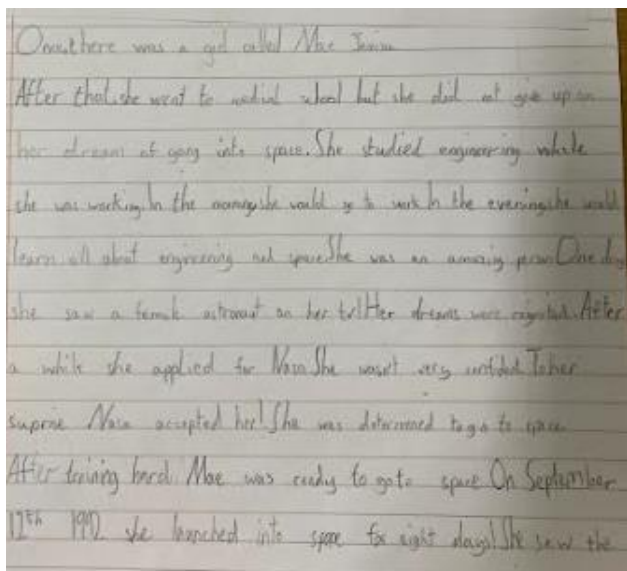 Once, there was a girl called Mae Jemison
After that, she went to medical school but she did not give up on
her dream of going into space. She studied engineering while
she was working. In the morning she would go to work In the evening she would
learn all about engineering and space She was an amazing person One day
she saw a female astronaut on her tv! Her dreams were reignited. After
a while she applied for Nasa She wasn't very confident To her
suprise Nasa accepted her! She was determined to go to space
After training hard. Mae was ready to go to space On September
12th 1992 she launched into space for eight days! She saw the